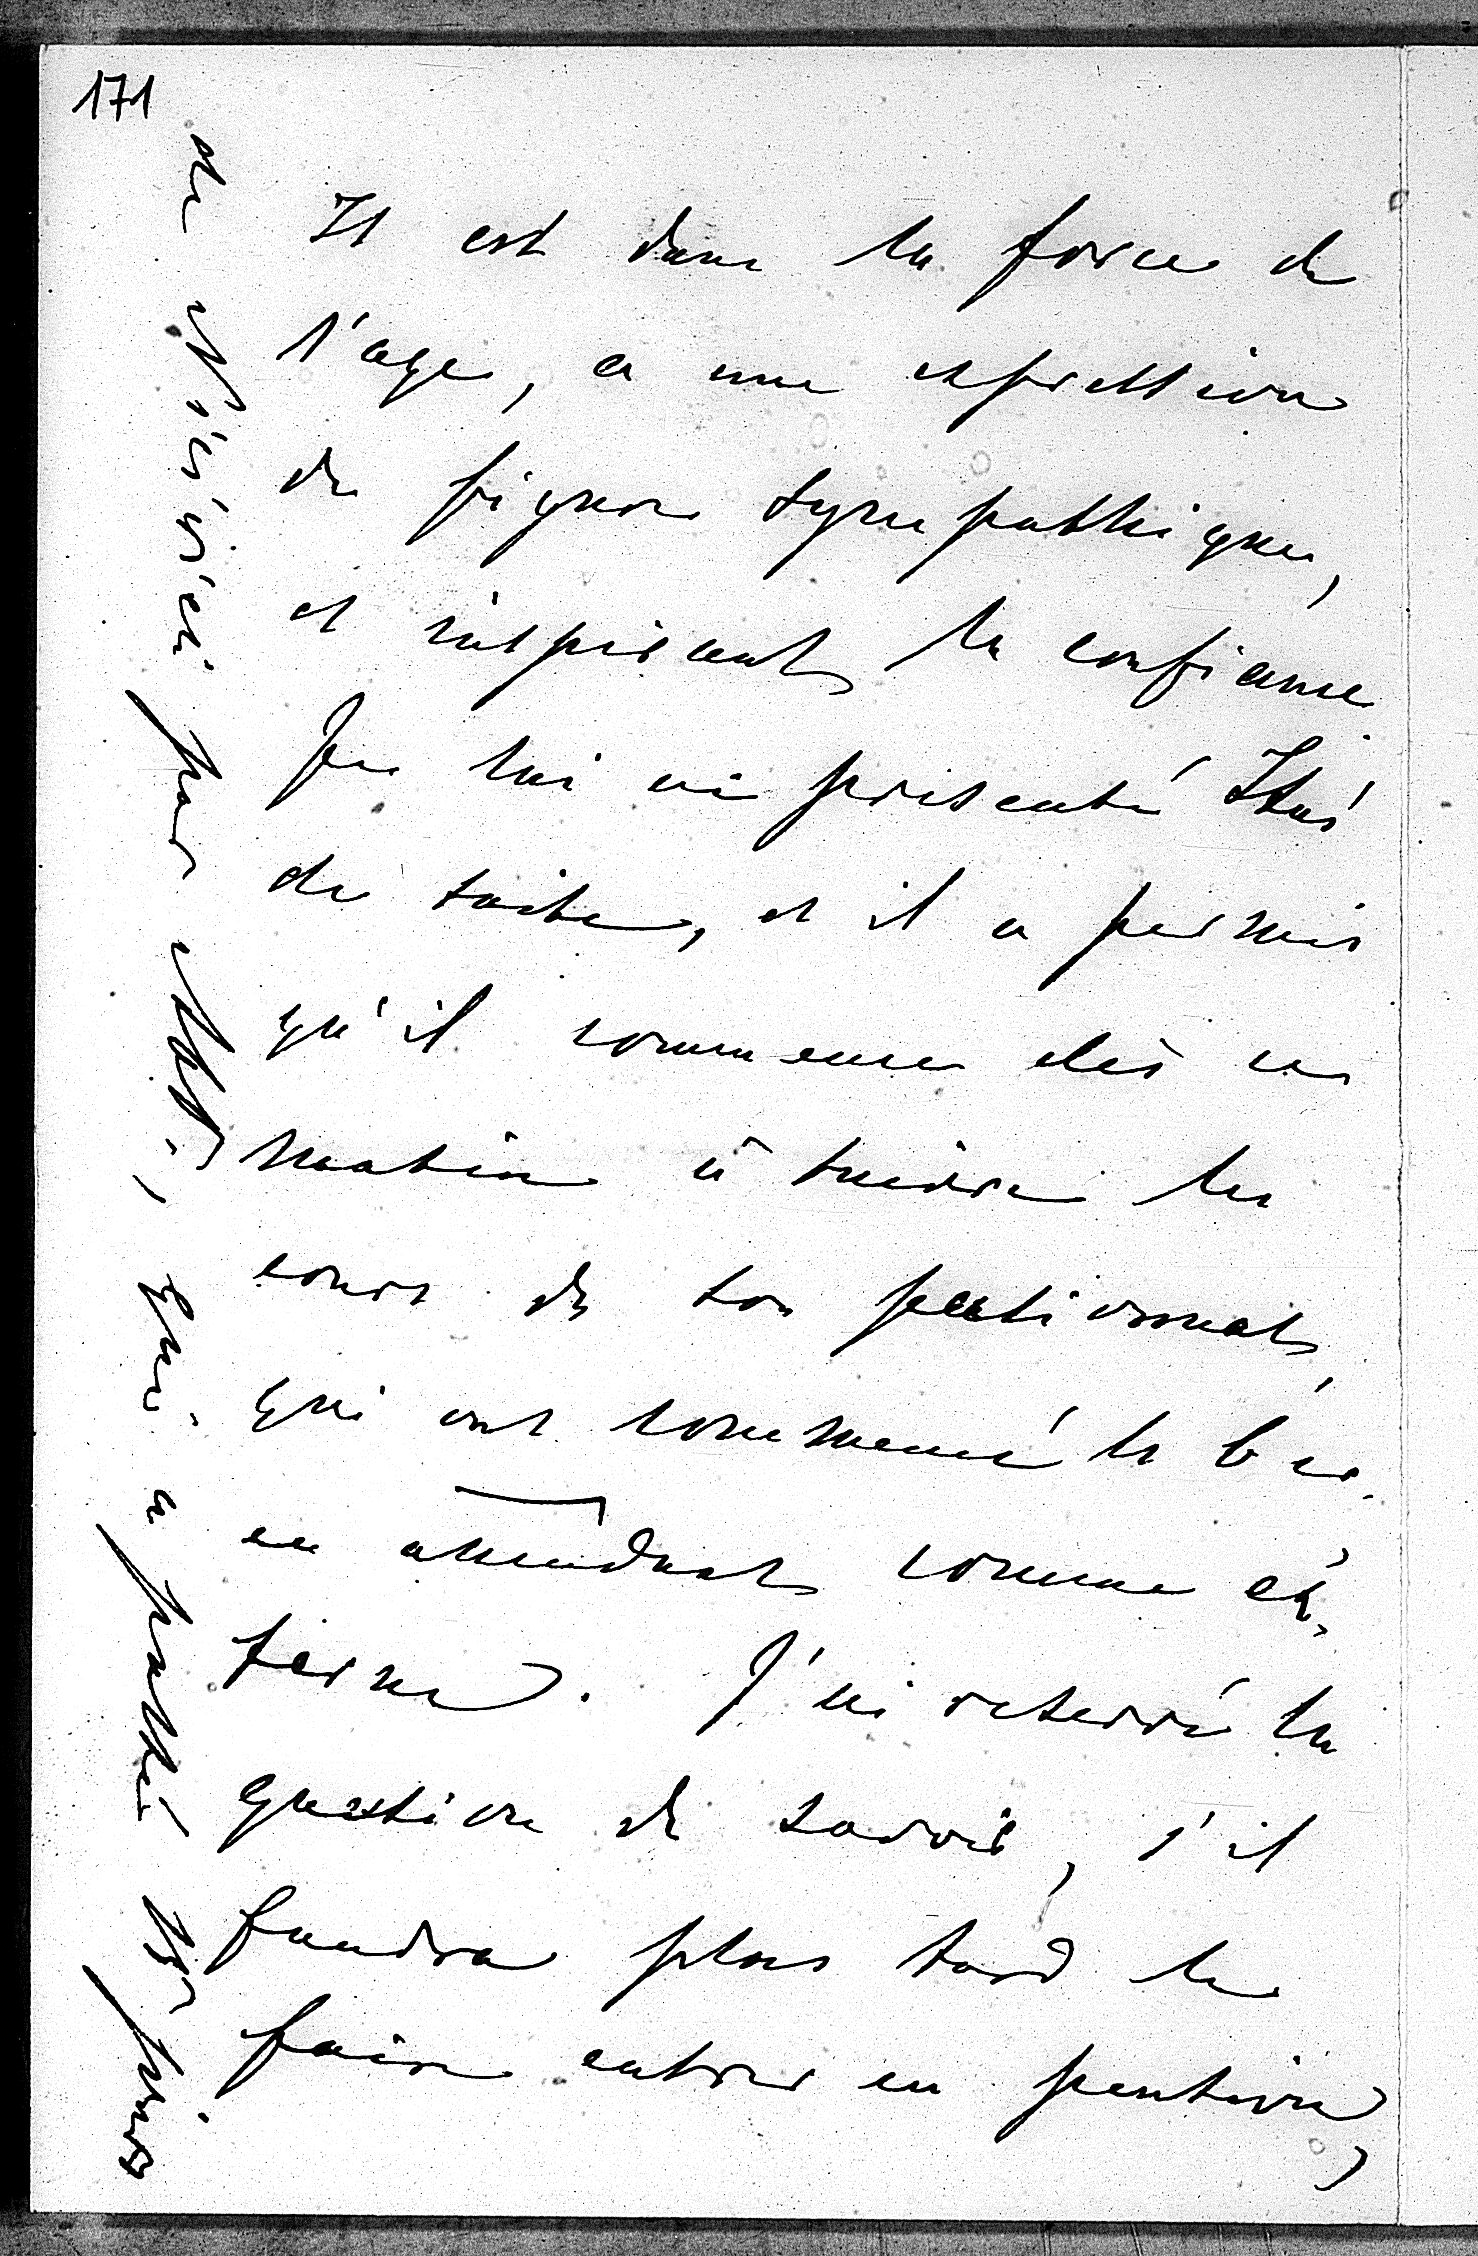 171
Il est dans la force de
l'age, a une expression
de figure sympathique,
et inspirant la confiance.
Je lui ai présenté Itié
de suite, et il a permis
qu'il commence dès ce
matin à suivre les
cours de son pensionnat,
qui ont commencé le 6 cr.
en attendant comme ex,
terne. J'ai reservé la
question de savoir, s'il
faudra plus tard le
faire entrer en pension,
par
qui a